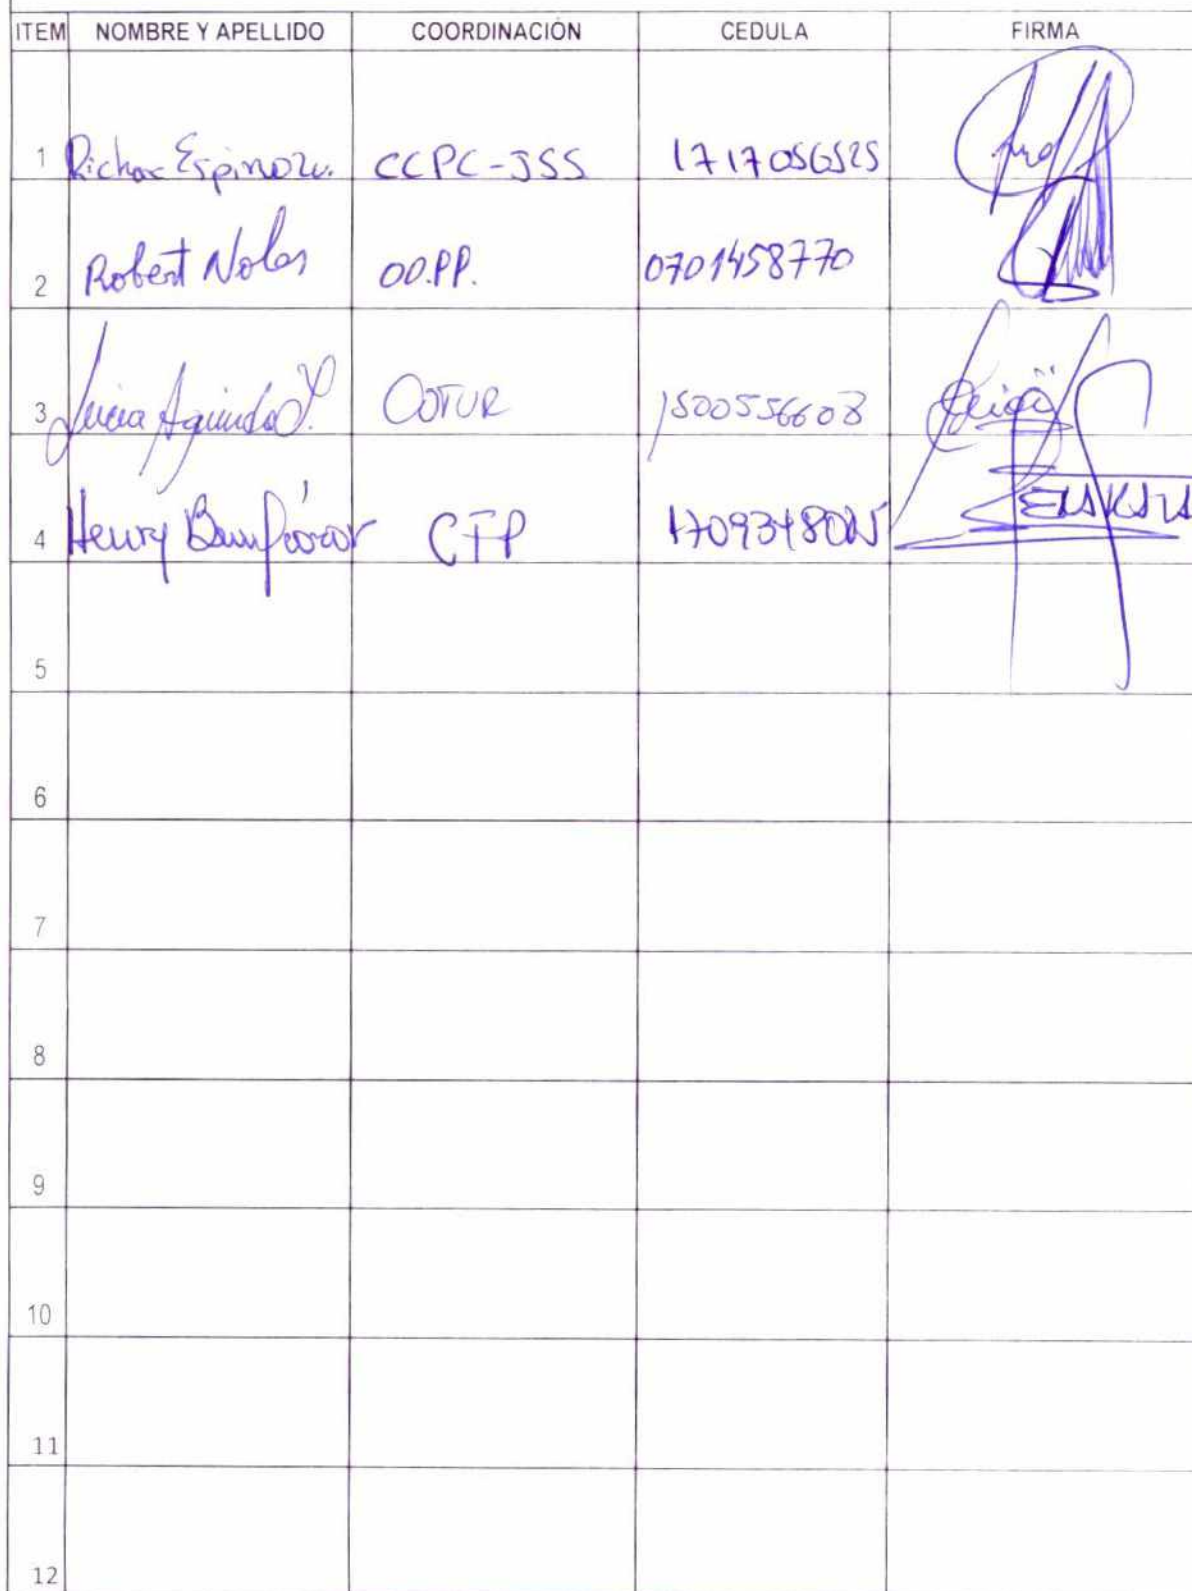 ITEM NOMBRE Y APELLIDO COORDINACIÓN CEDULA FIRMA
1 Richar Espinoza. CCPC-JSS 1717056525
2 Robert Noles OO.PP. 0701458770
3 Lucia Aguinda COTUR 1500556608
4 Henry CFP
5
6
7
8
9
10
11
12